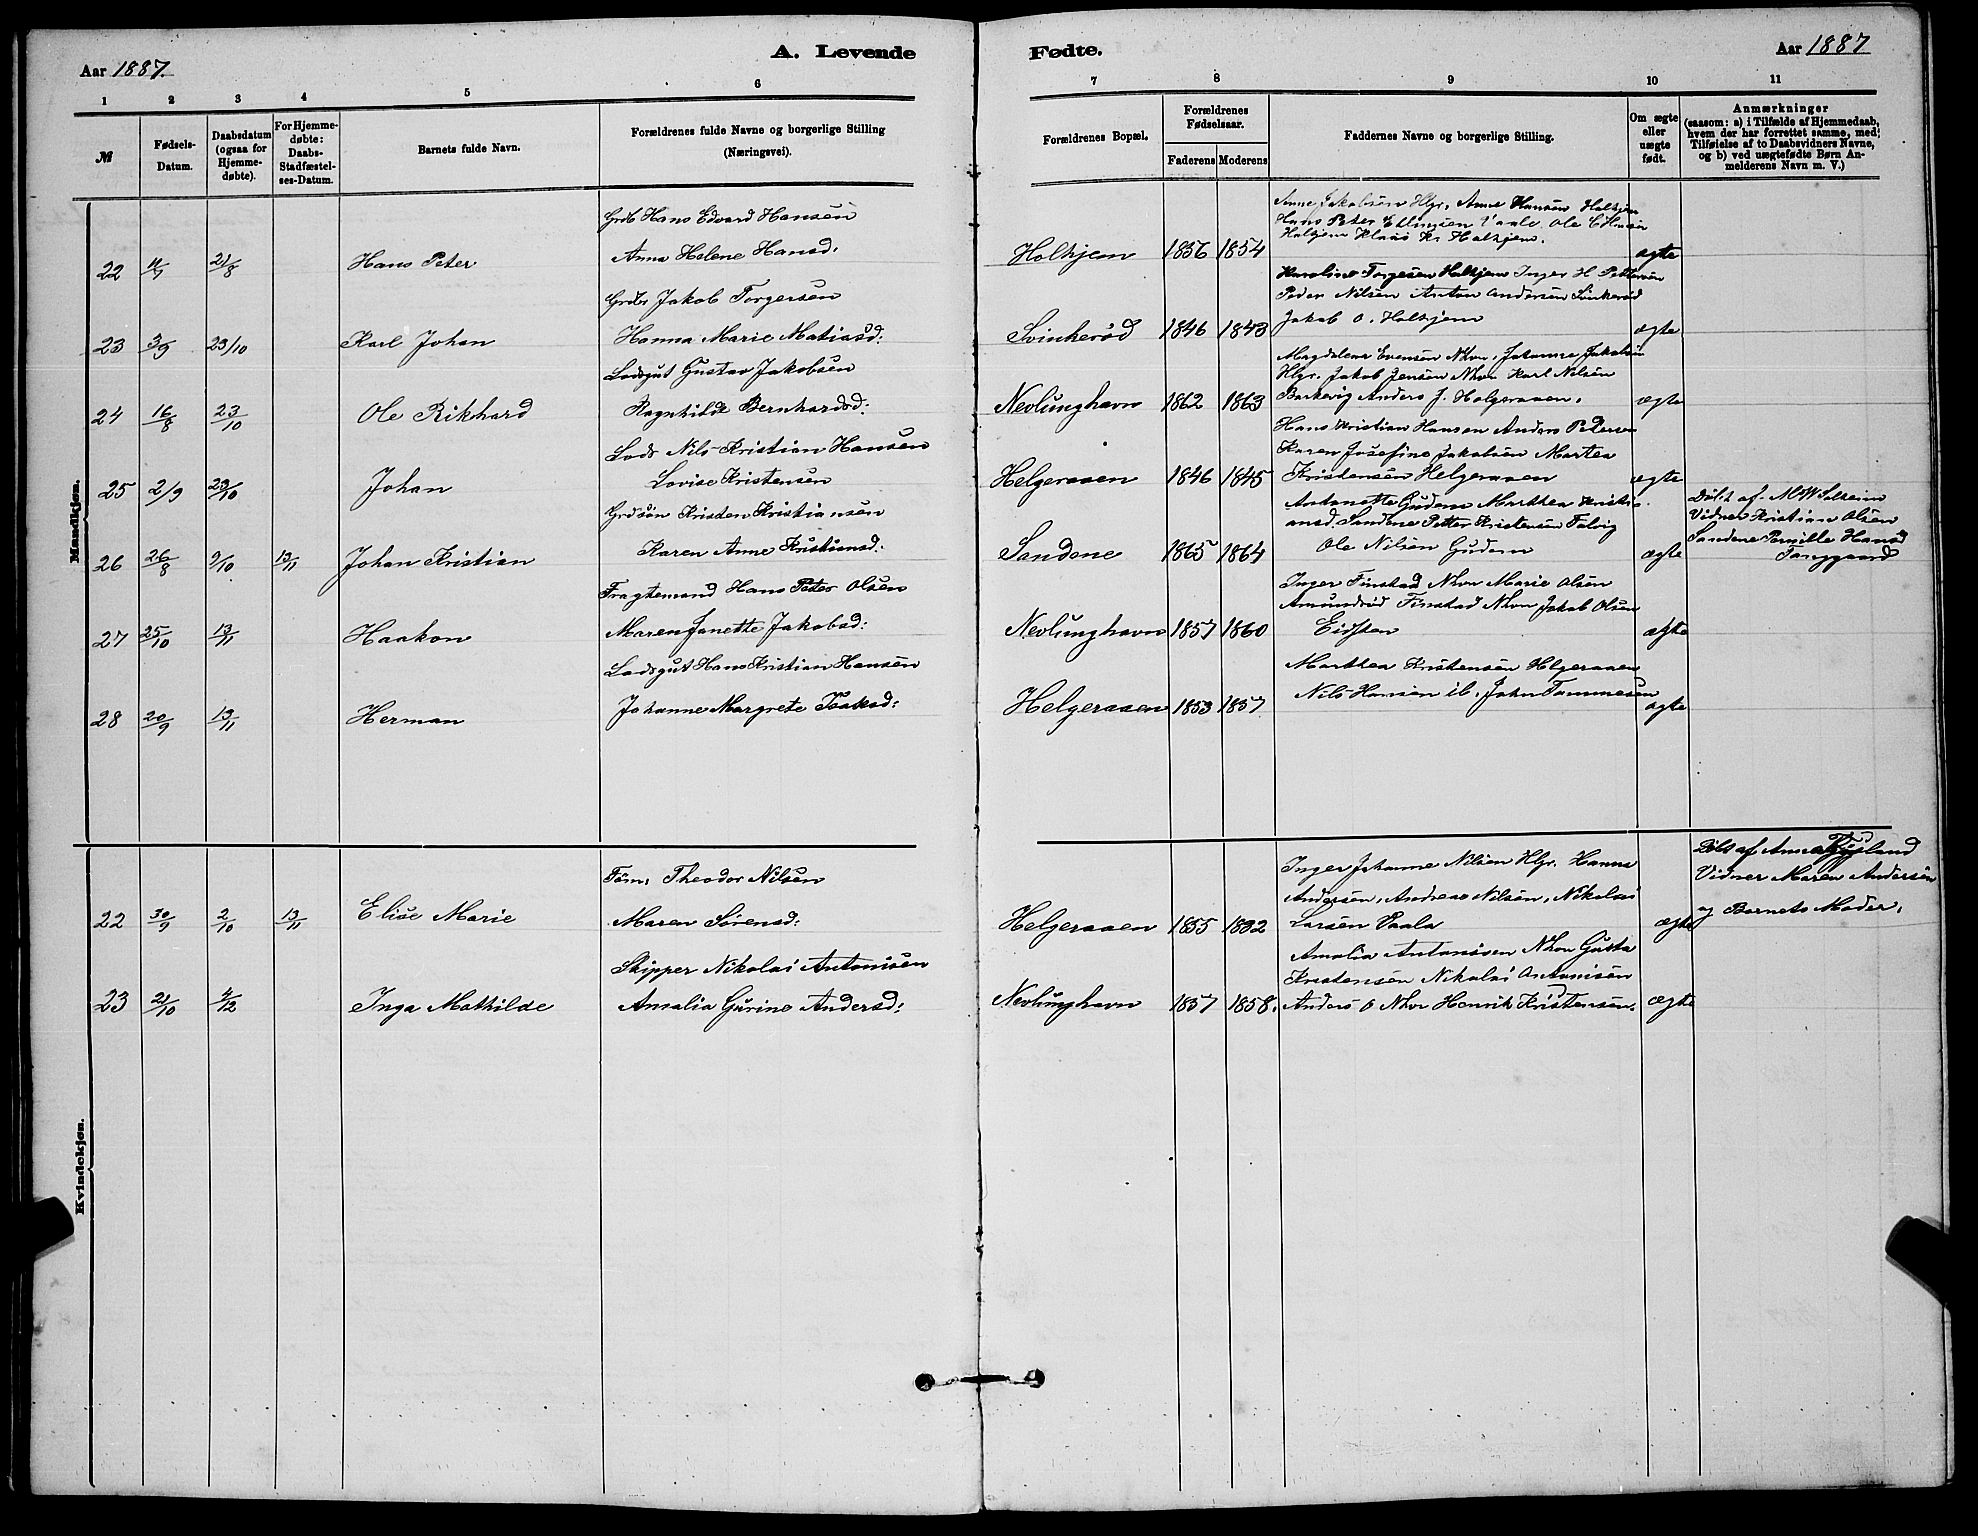 Aar 1887.
A. Levende
1 2 3 4 5 6
№
Fødsels-Datum.
Daabsdatum (ogsaa for Hjemme-døbte).
For Hjemme-døbte: Daabs-Stadfæstel-ses-Datum.
Barnets fulde Navn.
Forældrenes fulde Navne og borgerlige Stilling
(Næringsvei).
Mandkjøn.
Grdb Hans Edvard Hansen
22 11/7 21/8 Hans Peter Anna Helene Hansd:
Grdbr Jakob Torgersen
23 3/9 23/10 Karl Johan Hanna Marie Matiasd:
Lodsgut Gustav Jakobsen
24 16/8 23/10 Ole Rikhard Ragnhilde Bernhardsd:
Lods Nils Kristian Hansen
25 2/9 23/10 Johan Lovise Kristensen
Grdsøn Kristen Kristiansen
26 26/8 9/10 13/11 Johan Kristian Karen Anne Kristiansd:
Fragtemand Hans Peter Olsen
27 25/10 13/11 Haakon Maren Janette Jakobsd:
Lodsgut Hans Kristian Hansen
28 20/9 13/11 Herman Johanne Margrete Isaksd:
Kvindekjøn.
Tøm. Theodor Nilsen
22 30/9 2/10 13/11 Elise Marie Maren Sørensd:
Skipper Nikolai Antonisen
23 21/10 4/12 Inga Mathilde Amalia Gurine Andersd:
Fødte.
Aar 1887
7 8 9 10 11
Forældrenes Bopæl.
Forældrenes Fødselsaar.
Faderens Moderens
Faddernes Navne og borgerlige Stilling.
Om ægte eller uægte født.
Anmærkninger
(saasom: a) i Tilfælde af Hjemmedaab,
hvem der har forrettet samme, med
Tilføielse af to Daabsvidners Navne,
og b) ved uægtefødte Børn An-
melderens Navn m. V.)
Anne Jakobsen Hlgr. Anne Hansen Holtjem
Hans Peter Ellingsen Vaale Ole
Holtjem Klaus Kr. Holtjem.
Holtjem 1856 1854 ægte
Karoline Torgesen Holtjem Inger H Pettersen
Peder Nilsen Anton Andersen Svinkerød
Jakob O. Holtjem
Svinkerød 1846 1843 ægte
Magdalene Evensen Nhvn. Johanne Jakobsen
Hlgr. Jakob Jensen Nhvn Karl Nilsen
Nevlunghavn 1862 1863 Barkevig Anders J. Helgeraaen. ægte
Hans Kristian Hansen Anders Petersen
Karen Josefine Jakobsen Martea
Helgeraaen 1846 1845 Kristensen Helgeraaen ægte
Antonette Gudem Marthea Kristi-
ansd. Sandene Petter Kristensen Falvig
Sandene 1865 1864 Ole Nilsen Gudem ægte
Døbt af M W Solheim
Vidner Kristian Olsen
Sandene Pernille Hansd
Tanggaard
Inger Finstad Nhvn Marie Olsen
Amundrød Finstad Nhvn Jakob Olsen
Nevlunghavn 1857 1860 Eidsten ægte
Marthea Kristensen Helgeraaen
Nils Hansen ib. John Tommesen
Helgeraaen 1853 1857 ægte
Inger Johanne Nilsen Hlgr. Hanna
Andersen, Andreas Nilsen, Nikolai
Helgeraaen 1855 1832 Larsen Vaala ægte
Døbt af Anna Fuglland
Vidner Maren Andersen
og Barnets Moder.
Amalia Antonisen Nhvn Gusta
Kristensen Nikolai Antonisen
Nevlunghavn 1857 1858. Anders O Nhvn Henrik Kristensen. ægte